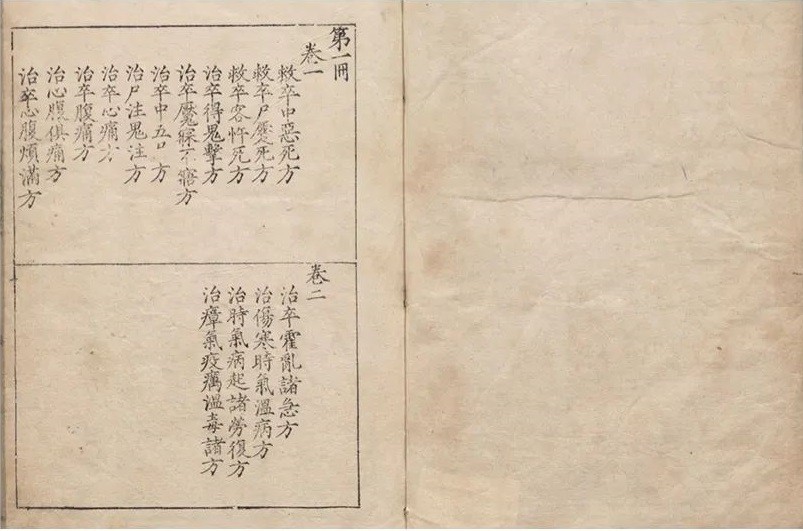 第一冊
卷一
救卒中惡死方
救卒尸蹷死方
救卒客忤死方
治卒得鬼擊方
治卒魘寐不寤方
治卒中五尸方
治尸注鬼注方
治卒心痛方
治卒腹痛方
治心腹俱痛方
治卒心腹煩滿方
卷二
治卒霍亂諸急方
治傷寒時氣溫病方
治時氣病起諸勞復方
治瘴氣疫癘溫毒諸方